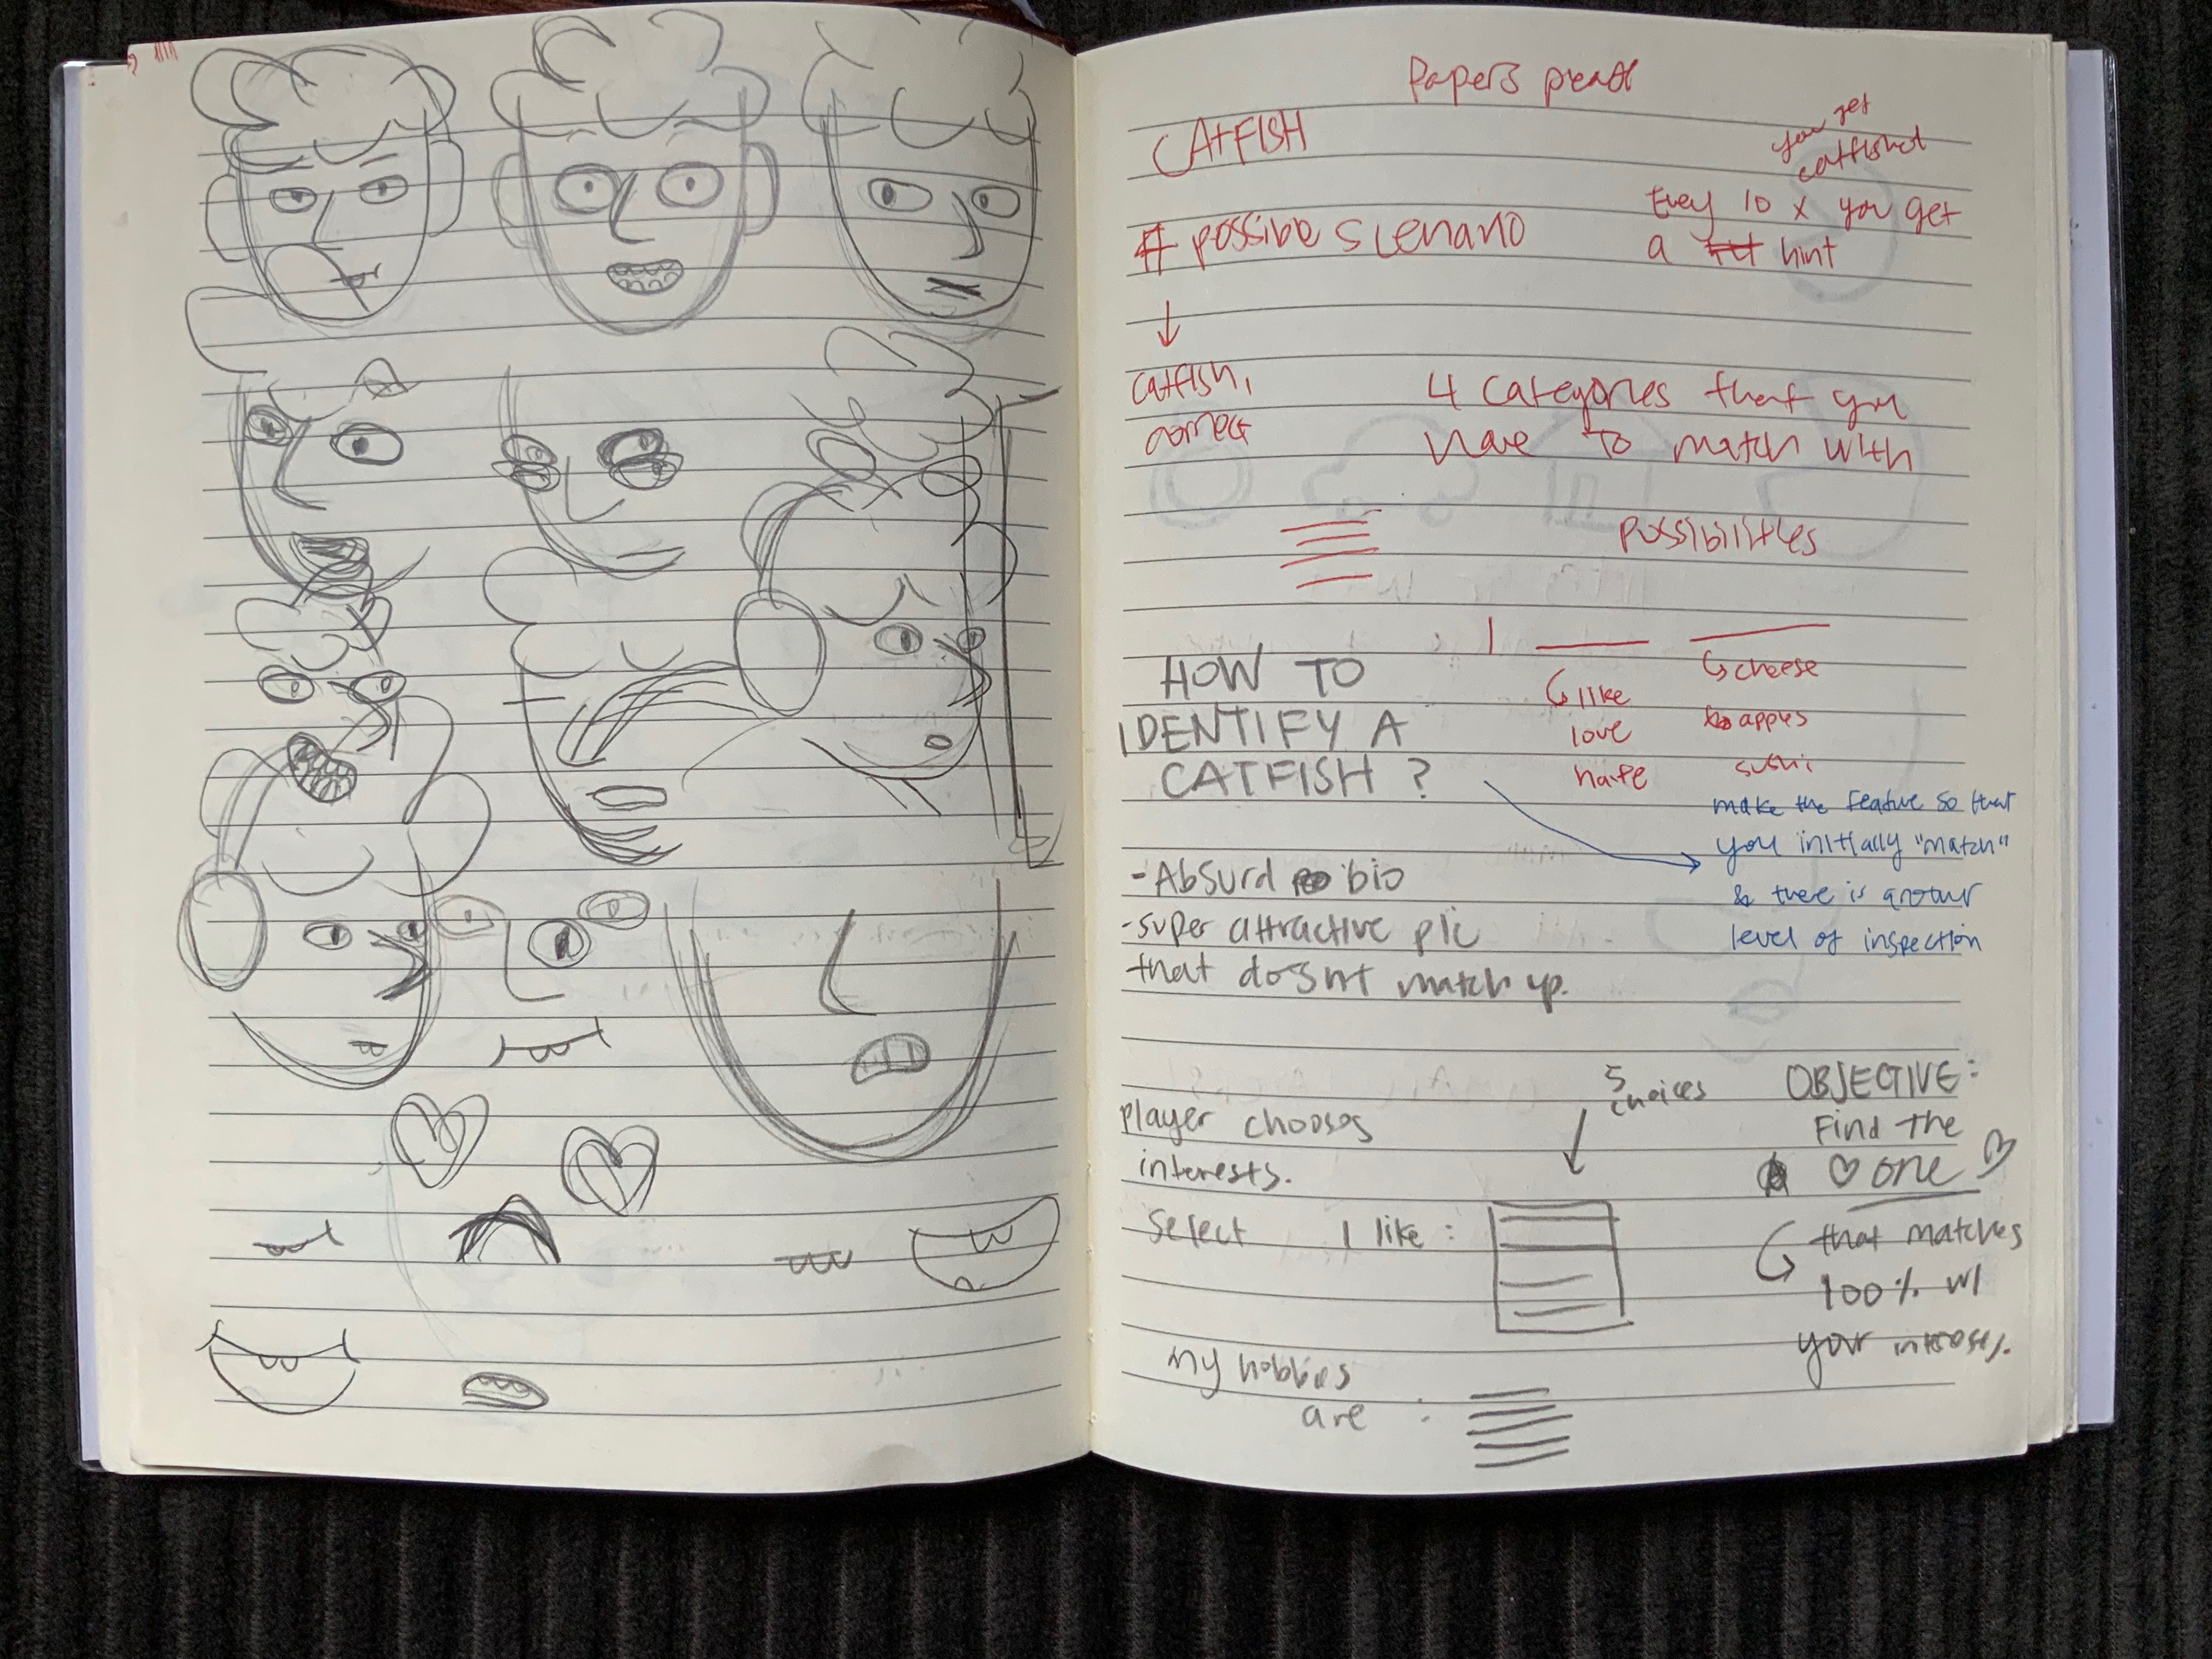 Papers pleatt
CATFISH
you get
catfished
Every 10 x you get
a hint
# possible scenario
↓
catfish,
correct
4 categories that you
have to match with
possibilities
I ____ ____
↳ like
love
hate
↳ cheese
↳ apples
sushi
HOW TO
IDENTIFY A
CATFISH ?
make the feature so that
you initially "match"
& there is another
level of inspection
- Absurd bio
- super attractive pic
that doesnt match up.
Player chooses
interests.
Select I like :
5
choices
my hobbies
are :
OBJECTIVE:
Find the
♡ one ♡
↳ that matches
100% w/
your interests.